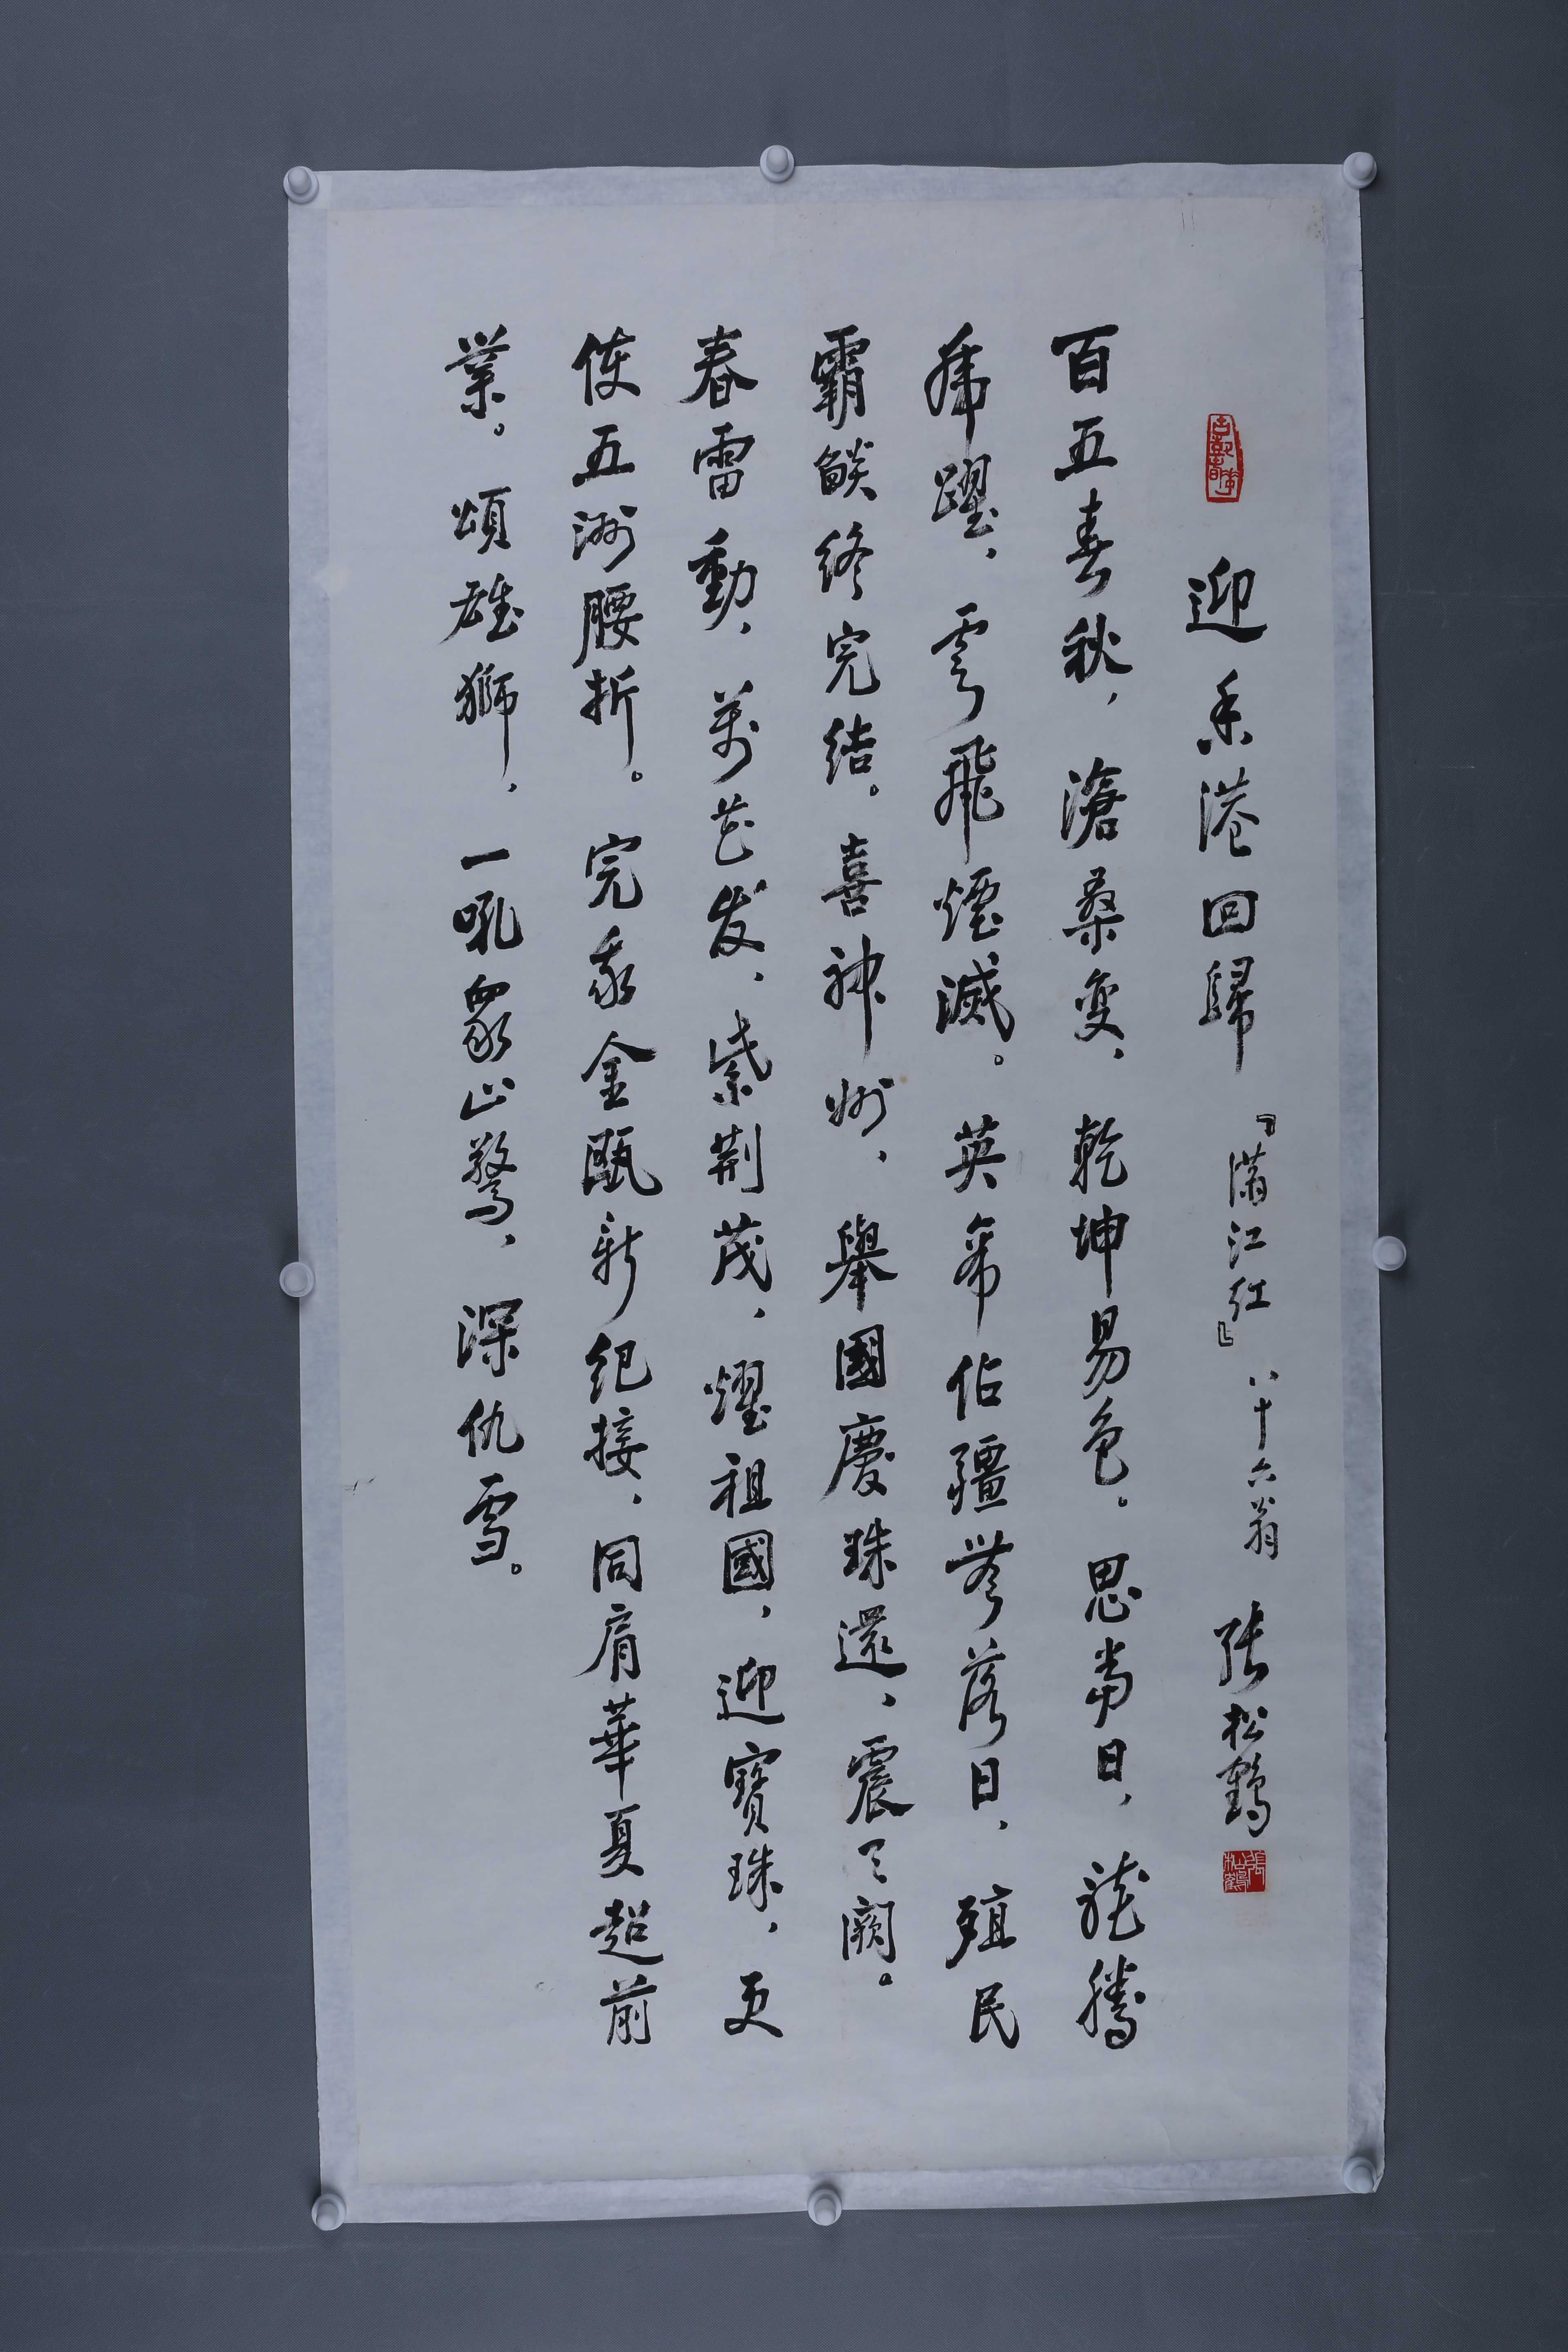 迎香港回歸 『滿江红』 八十六翁 張松鶴 張松鶴
百五春秋，滄桑变，乾坤易色。思當日，龍騰
虎躍，雲飛煙滅。英帝佔疆夢落日，殖民
霸燄终完结。喜神州，舉國慶珠還，震天闕。
春雷動，萬花发，紫荆茂，耀祖國，迎寶珠，更
使五洲腰折。完我金甌新纪接，同肩華夏超前
業。頌雄獅，一吼眾山驚，深仇雪。